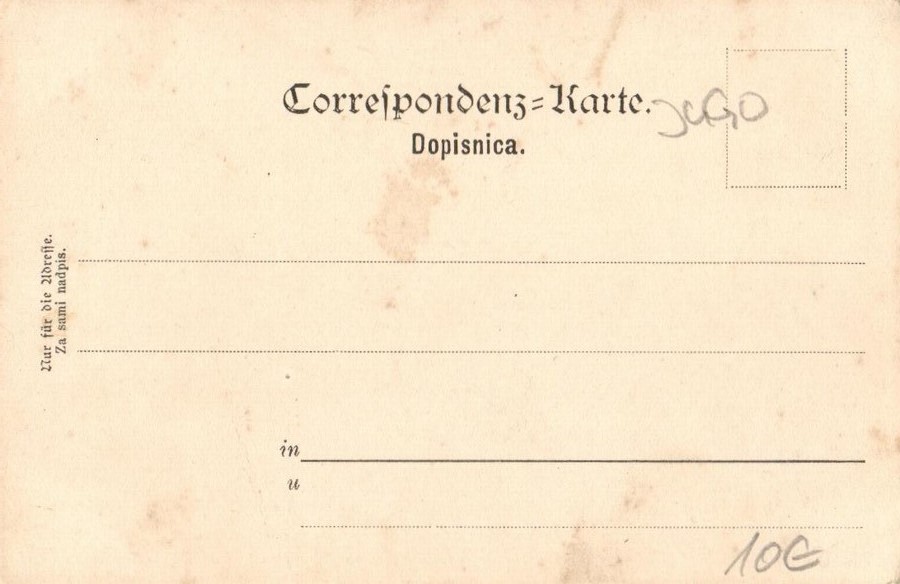 Correspondenz=Karte.
JUGO
Dopisnica.
Nur für die Adresse.
Za sami nadpis.
in
u
10€